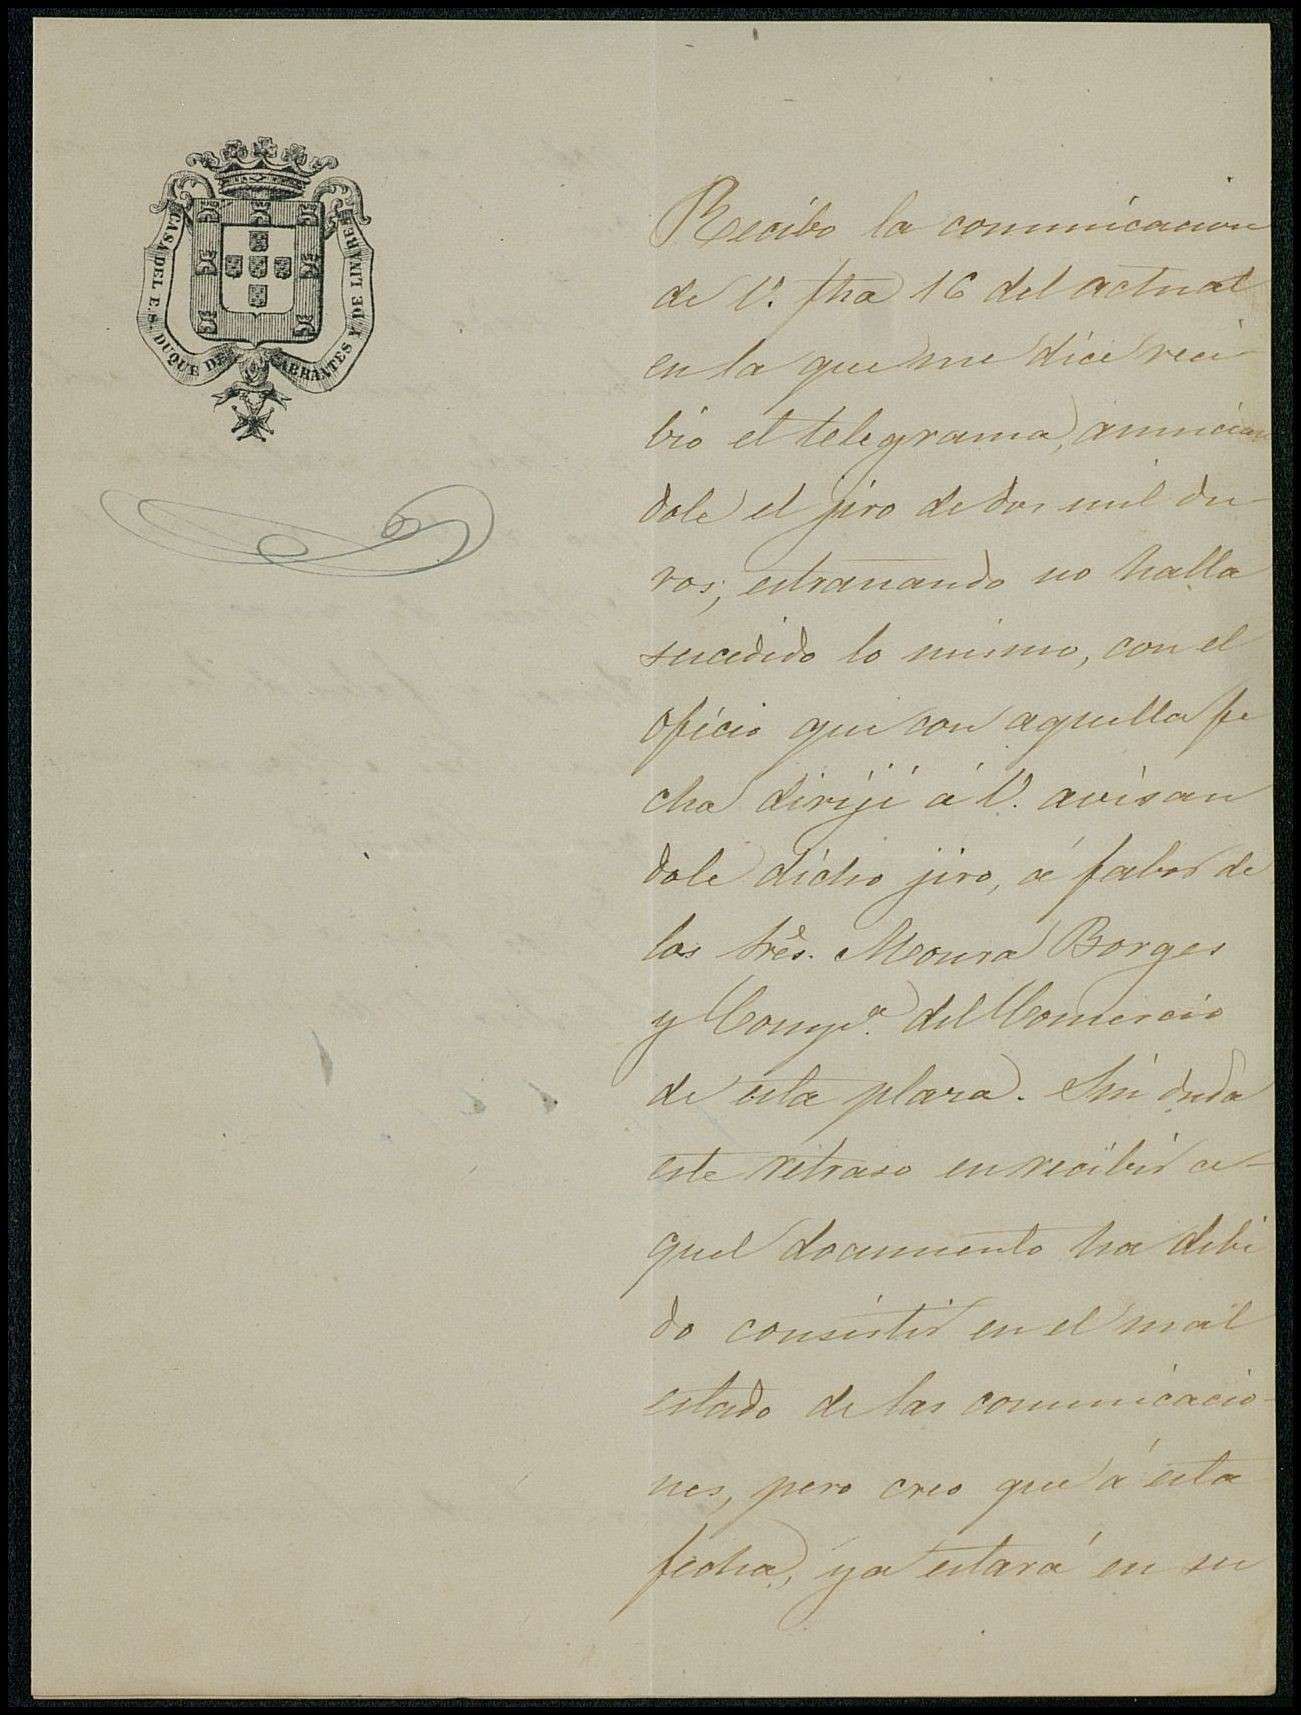 CASA DEL E.S. DUQUE DE ABRANTES Y DE LINARES
Recibo la comunicacion
de V. fha 16 del actual
en la que me dice reci-
bió el telegrama, anuncian
dole el jiro de dos mil du-
ros; estrañando no halla
sucedido lo mismo, con el
oficio que con aquella fe
cha dirijí á V. avisan
dole dicho jiro, á fabor de
los Sres. Moura Borges
y Compª. del Comercio
de esta plaza. Sin duda
este retraso en recibir a-
quel documento ha debi
do consistir en el mal
estado de las comunicacio-
nes, pero creo que á esta
fecha, ya estará en su